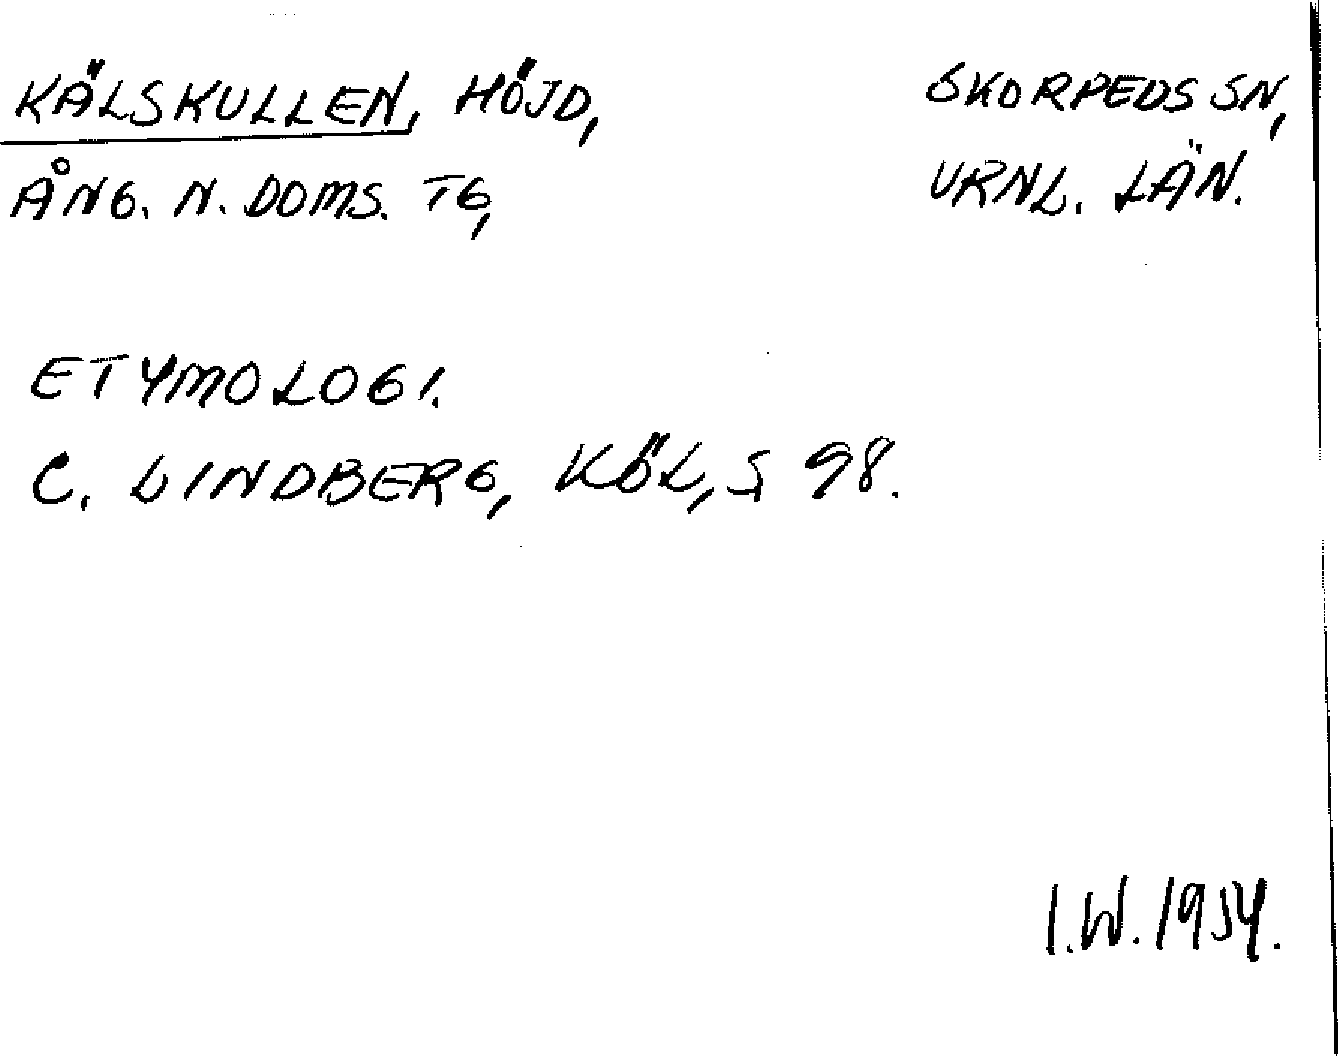 KÄLSKULLEN, HÖJD, SKORPEDS SN,
ÅNG. N. DOMS. TG, VRNL. LÄN.
ETYMOLOGI.
C. LINDBERG, KÖL, S 98.
I.W. 1954.